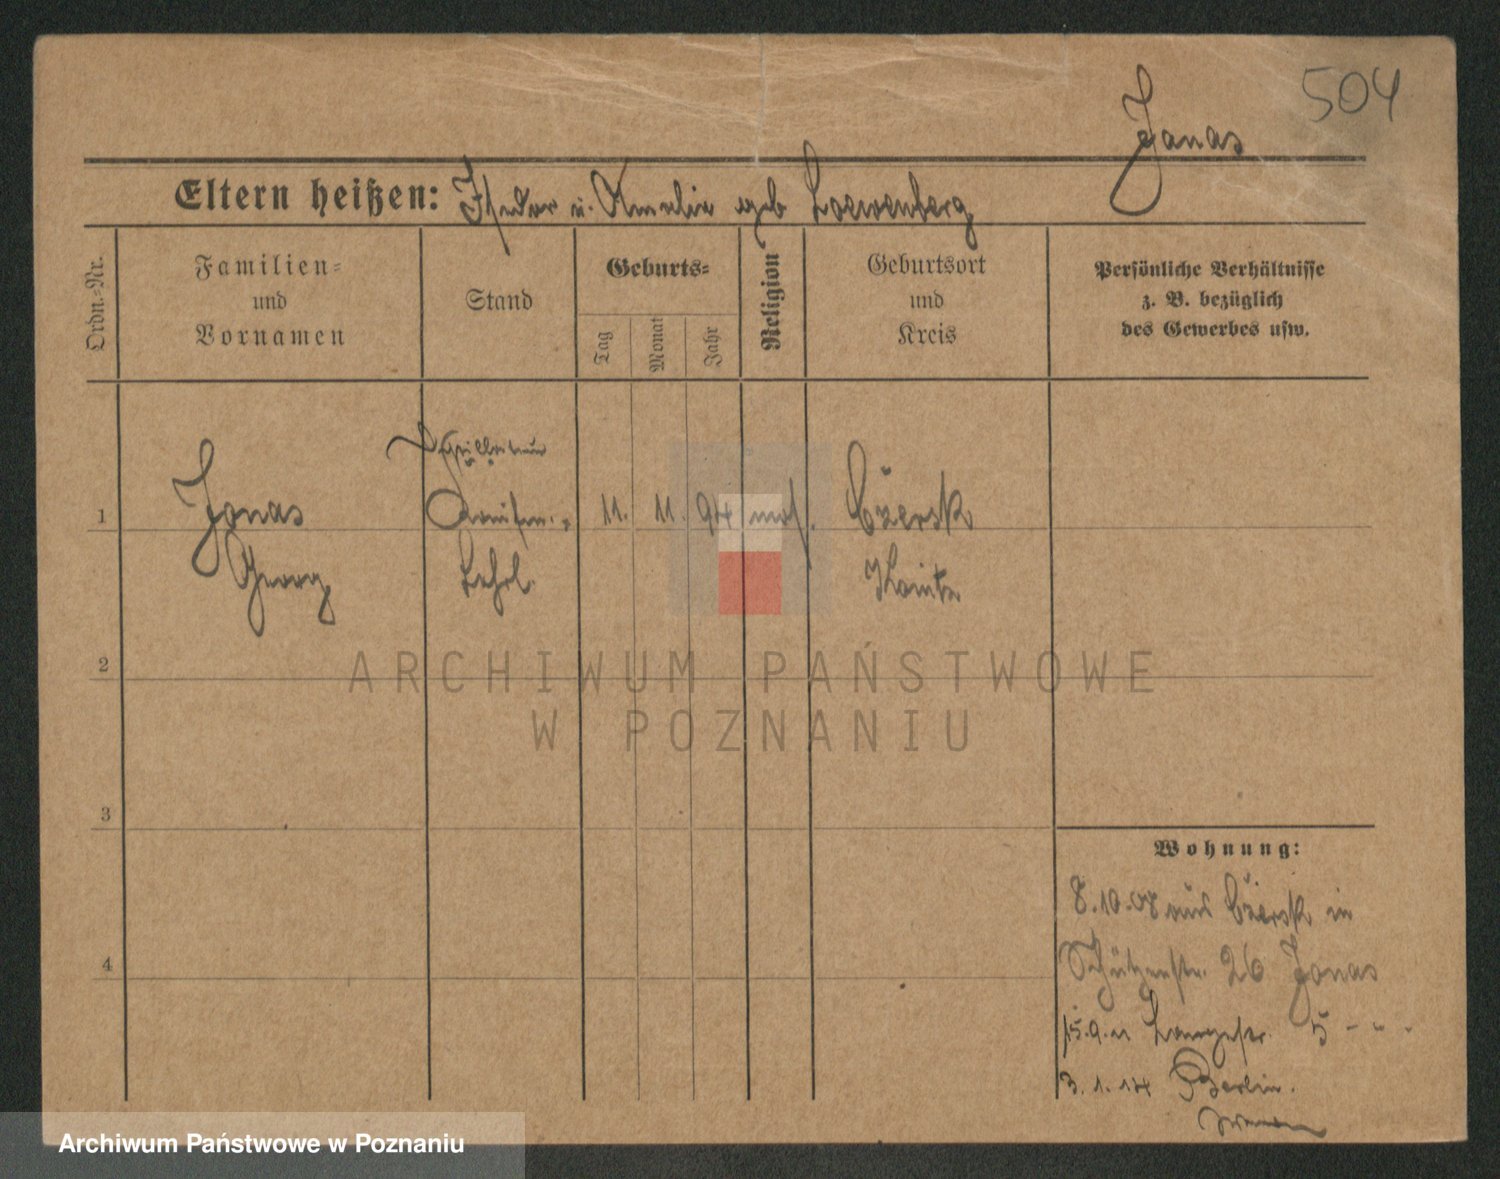 504
Jonas
Eltern heißen: Isidor u. Amalie geb Loewenberg
Ordn.-Nr.
Familien-
und
Vornamen
Stand
Geburts-
Tag
Monat
Jahr
Religion
Geburtsort
und
Kreis
Persönliche Verhältnisse
z. B. bezüglich
des Gewerbes usw.
1
Jonas
Georg
Lehrl.
11. 11. 94 mos.
Czersk
Konitz
2
3
4
Wohnung:
8.10.08 aus Czersk in
Schützenstr. 26 Jonas
15.9.11 Langestr. 5 - " -
3.1.14 Berlin.
ARCHIWUM PAŃSTWOWE
W POZNANIU
Archiwum Państwowe w Poznaniu